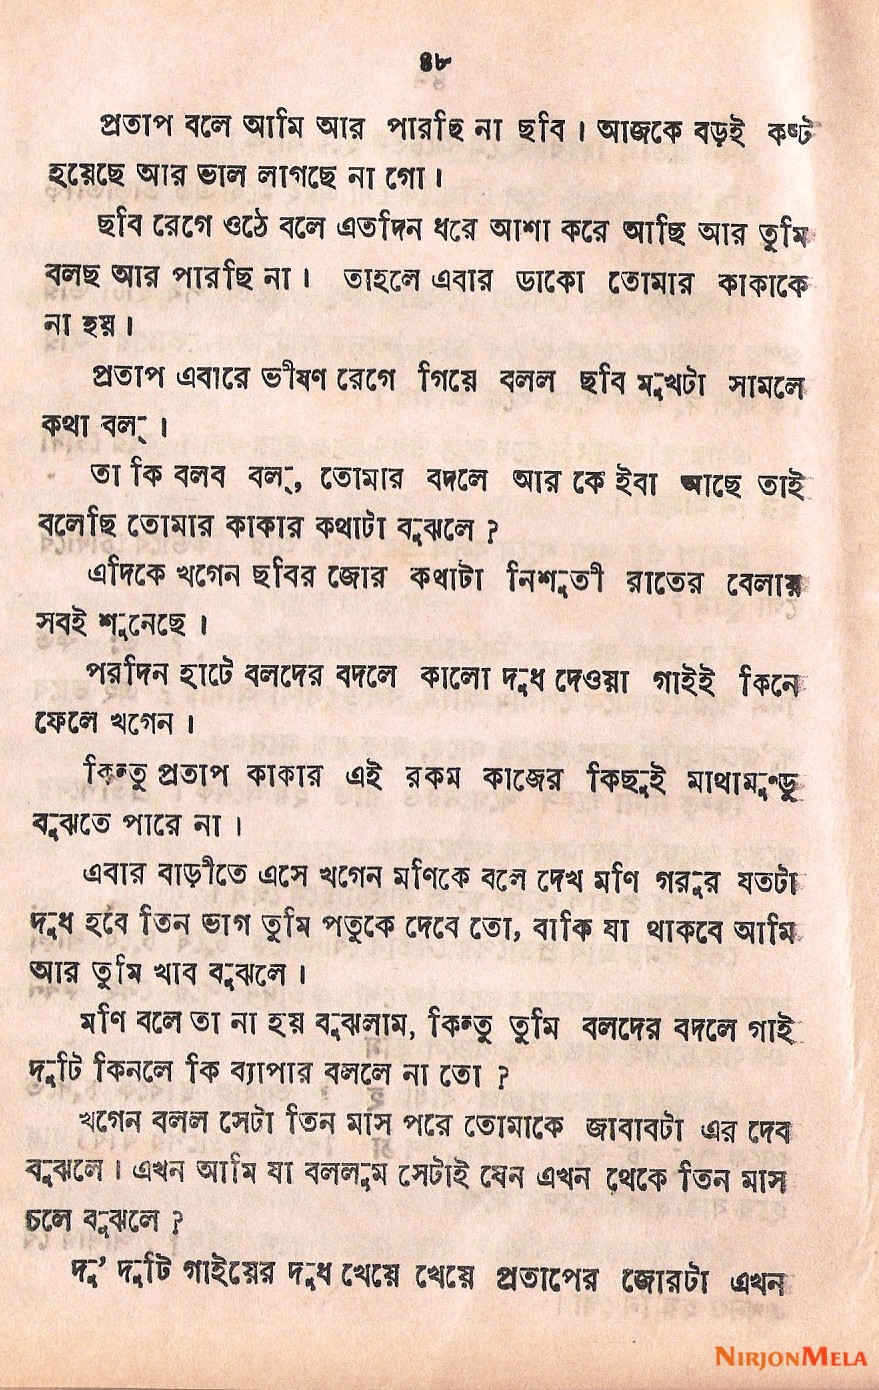 ৪৮
প্রতাপ বলে আমি আর পারছি না ছবি । আজকে বড়ই কষ্ট
হয়েছে আর ভাল লাগছে না গো ।
ছবি রেগে ওঠে বলে এতদিন ধরে আশা করে আছি আর তুমি
বলছ আর পারছি না । তাহলে এবার ডাকো তোমার কাকাকে
না হয় ।
প্রতাপ এবারে ভীষণ রেগে গিয়ে বলল ছবি মুখটা সামলে
কথা বলু ।
তা কি বলব বলু, তোমার বদলে আর কে ইবা আছে তাই
বলেছি তোমার কাকার কথাটা বুঝলে ?
এদিকে খগেন ছবির জোর কথাটা নিশুতী রাতের বেলায়
সবই শুনেছে ।
পরদিন হাটে বলদের বদলে কালো দুধ দেওয়া গাইই কিনে
ফেলে খগেন ।
কিন্তু প্রতাপ কাকার এই রকম কাজের কিছুই মাথামুণ্ডু
বুঝতে পারে না ।
এবার বাড়ীতে এসে খগেন মণিকে বলে দেখ মণি গরুর যতটা
দুধ হবে তিন ভাগ তুমি পতুকে দেবে তো, বাকি যা থাকবে আমি
আর তুমি খাব বুঝলে ।
মণি বলে তা না হয় বুঝলাম, কিন্তু তুমি বলদের বদলে গাই
দুটি কিনলে কি ব্যাপার বললে না তো ?
খগেন বলল সেটা তিন মাস পরে তোমাকে জাবাবটা এর দেব
বুঝলে । এখন আমি যা বললুম সেটাই যেন এখন থেকে তিন মাস
চলে বুঝলে ?
দু' দুটি গাইয়ের দুধ খেয়ে খেয়ে প্রতাপের জোরটা এখন
NIRJONMELA